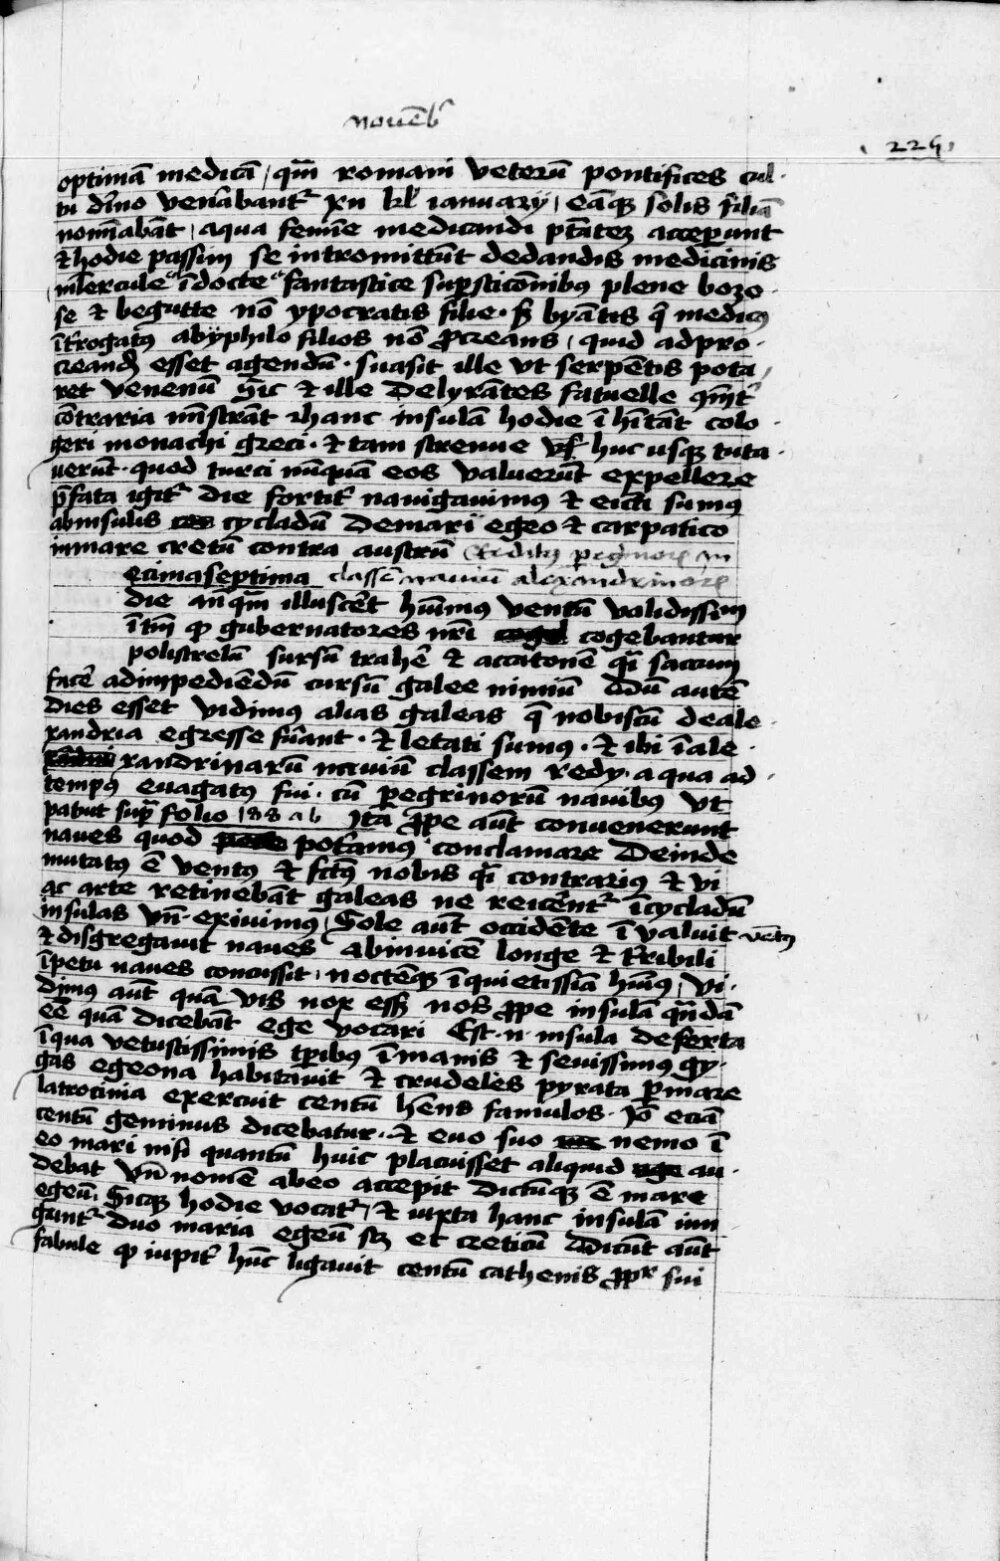 novēb
224
optimā medicā / quā romani veterū pontifices cul
tu diuo venerabantr xii kl ianuarij / eāqz solis filiā
nominabāt / a qua femine medicandi ptātez acceperunt
et hodie passim se intromittūt de dandis medicinis
mercule īdocte fantastice supsticōnibus plene bozo
se et begutte nō ypocratis filie · s byātis q medicus
īterrogatus a byphilo filios nō procreans / quid ad pro
creandū esset agendū · suasit ille vt serpētis pota
ret venenū Sic et ille delyrātes fatuelle
cōtraria mīstrāt et hanc insulā hodie īhītāt colo
geri monachi greci · et tam strenue huc usqz tuta
uerūt · quod turci nūquā eos valuerūt expellere
pfata igitr die fortitr nauigauimus et eiecti sumus
ab insulis cycladū de mari egeo et carpatico
in mare cretū contra austrū Reditus pegrinorz in
ecimaseptima classē nauiū alexandrinorz
die anqm illuscert hūimus ventū validissim
ītm qp gubernatores nri cogebantur
polistrelā sursū trahē et accatonē qi saccum
facē ad impediēdū cursū galee nimiū Dū autē
dies esset vidimus alias galeas q nobiscū de ale
xandria egresse fūant · et letati sumus · et ibi ī ale
xandrinarū nauiū classem redij · a qua ad
tempus euagatus fui · cū peregrinorū nauibus vt
patut supra folio 188 a b Ita prope aūt conuenerunt
naues quod potamus conclamare Deinde
mutatus ē ventus et fctus nobis qi contrarius et vi
ac arte retinebāt galeas ne reicerētr ī cycladū
insulas vn exiuimus / Sole aūt occidēte ī valuit vētus
et disgregauit naues abinuicē longe et tribili
īpetu naues concussit / noctēqz ī quietissiā hūimus / vi
dimus aūt quā vis nox essz nos prope insulā quādā
eē quā dicebāt ege vocari Est · n · insula deserta
ī qua vetustissimis tpibus īmanis et seuissimus gy
gas egeona habitauit et crudeles pyrata p mare
latrocinia exercuit centū hēns famulos · Io eciā
centū geminus dicebatur · et euo suo nemo ī
eo mari nisi quantū huic placuisset aliquid au
debat Vn nomē ab eo accepit dictūqz ē mare
egeū · Sicqz hodie vocatr / et iuxta hanc insulā iun
guntr duo maria egeū sz et creticū Dicūt aūt
fabule qp iupitr hūc ligauit centū cathenis ppr sui